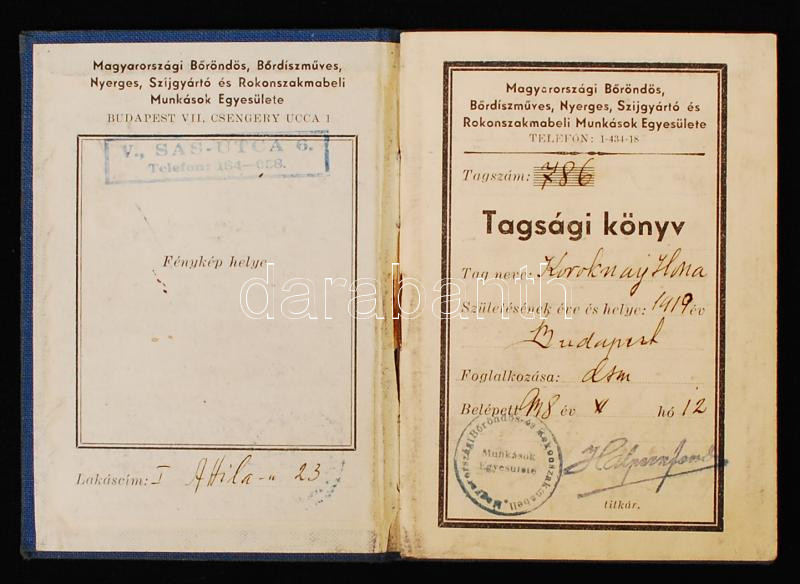 Magyarországi Bőröndös, Bőrdíszműves,
Nyerges, Szíjgyártó és Rokonszakmabeli
Munkások Egyesülete
BUDAPEST VII, CSENGERY UCCA 1
V., SAS-UTCA 6.
Telefon: 184—058.
Fénykép helye
Lakáscím: I Attila-u 23
Magyarországi Bőröndös,
Bőrdíszműves, Nyerges, Szíjgyártó és
Rokonszakmabeli Munkások Egyesülete
TELEFÓN: 1-434-18
Tagszám: 786
Tagsági könyv
Tag neve: Koroknay Ilona
Születésének éve és helye: 1919 év
Budapest
Foglalkozása: dsm
Belépett 938 év X hó 12
Magyarországi Bőröndös- és Rokonszakmabeli
Munkások
Egyesülete
titkár.
darabanth